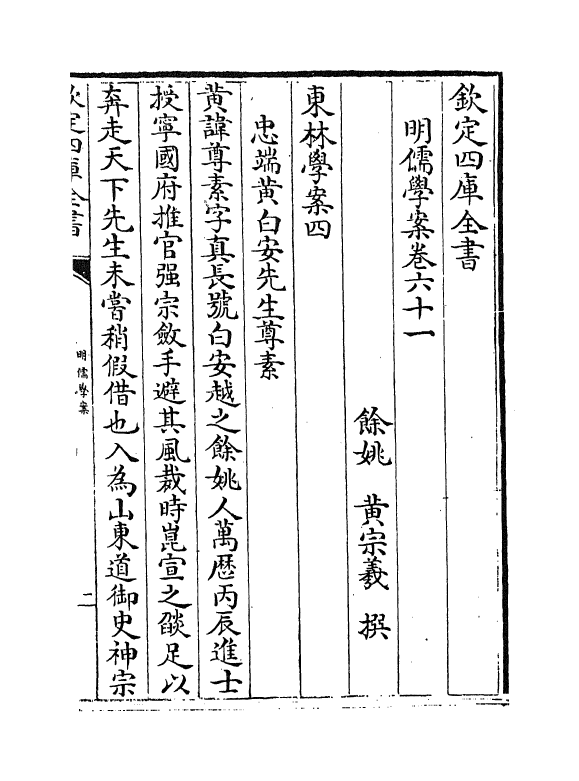 欽定四庫全書
明儒學案卷六十一
餘姚 黄宗羲 撰
東林學案四
忠端黄白安先生尊素
黄諱尊素字真長號白安越之餘姚人萬歷丙辰進士
授寧國府推官强宗斂手避其風裁時崑宣之燄足以
奔走天下先生未嘗稍假借也入為山東道御史神宗
欽定四庫全書
明儒學案